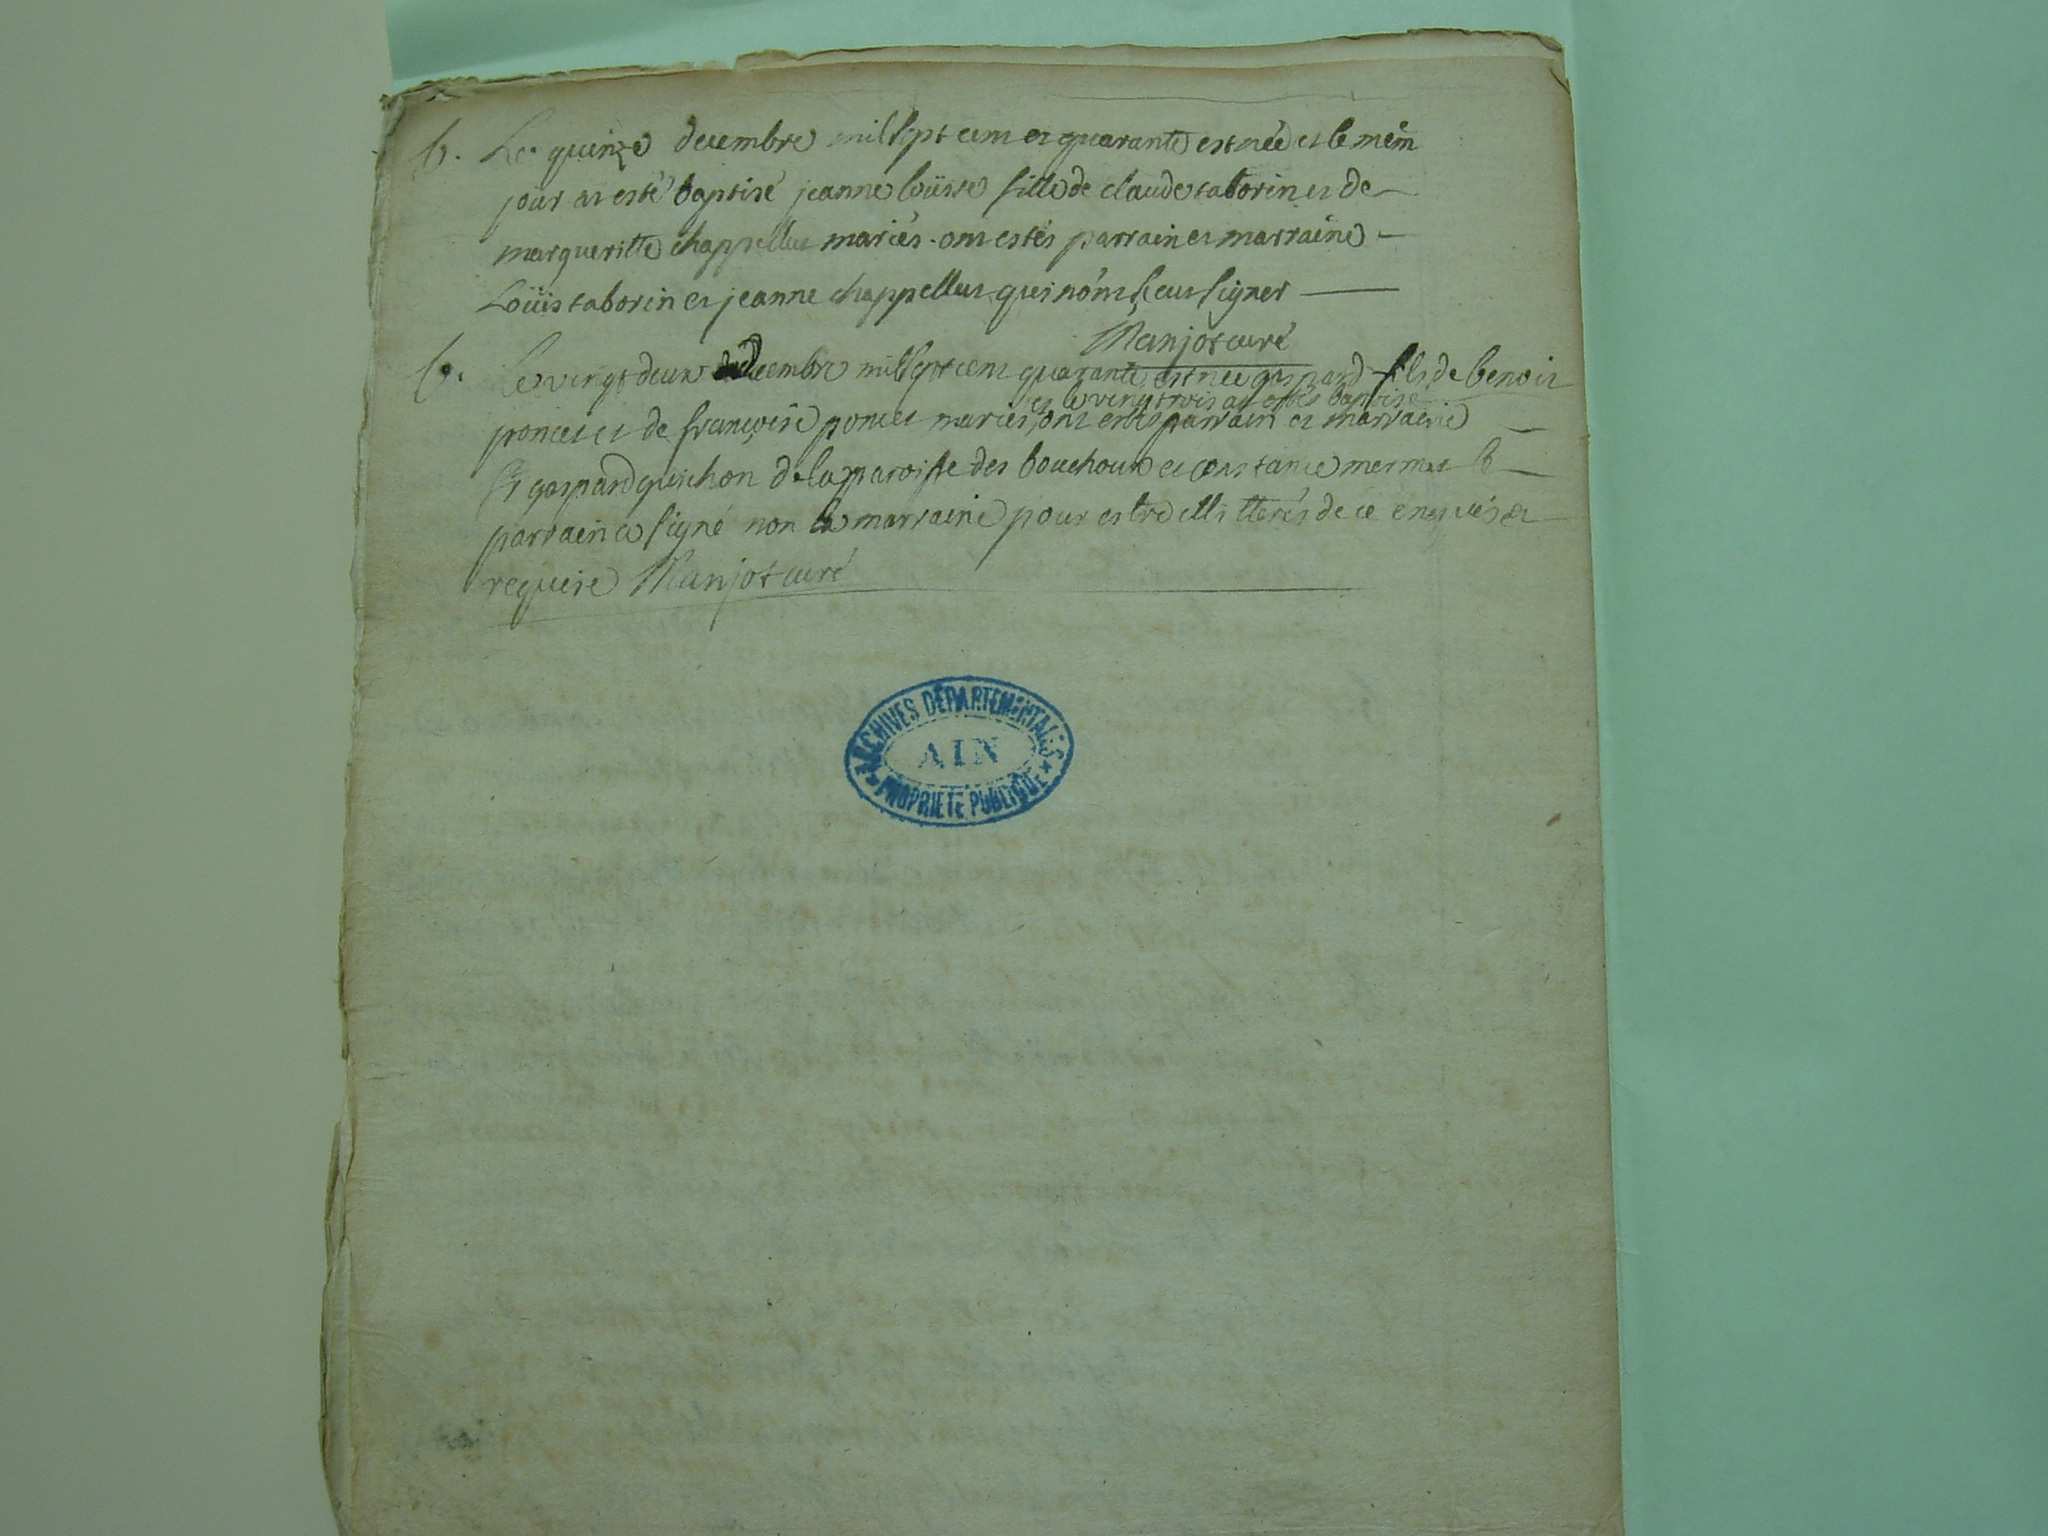 b. Le quinze decembre mil sept cent et quarante est née et le mêm
jour at esté baptisé jeanne loüise fille de claude taborin et de
margueritte chappellut mariés. ont estés parrain et marraine
Loüis taborin et jeanne chappellut qui nónt sceut signer
Manjot curé
b. Le vingt deux decembre mil sept cent quarante est née gaspard fils de benoit
et le vingt trois at estés baptisé
poncet et de françoise poncet mariés, ont estés parrain et marraine
gaspard guichon de la paroisse des bouchoux et constance mermet le
parrain a signé non la marraine pour estre illitterés de ce enquis et
requise Manjot curé
ARCHIVES DÉPARTEMENTALES
AIN
PROPRIÉTÉ PUBLIQUE